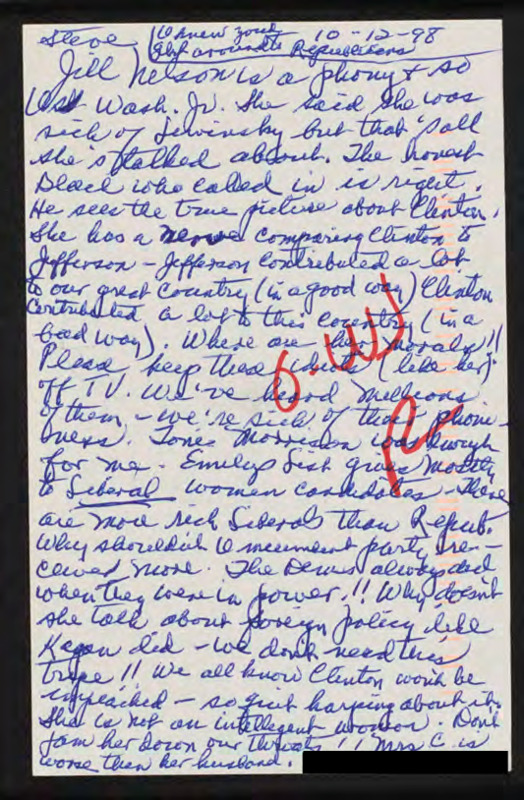 Steve, 10-12-98
around Republicans
Jill Nelson is a phony & so
Wash. Jr. She said she was
sick of Lewinsky but that's all
she's talked about. The honest
Black who called in is right.
He sees the true picture about Clinton.
She has a nerve comparing Clinton to
Jefferson - Jefferson contributed a lot
to our great country (in a good way) Clinton
contributed a lot to this country (in a
bad way). Where are her morals!!
Please keep these idiots (like her)
off TV. We've heard millions
of them - we're sick of that phoni-
ness. Toni Morrison was enough
for me. Emily's List gives mostly
to Liberal women candidates. There
are more rich Liberals than Repub.
Why shouldn't incumbent party re-
ceived more. The Dems always did
when they were in power!! Why doesn't
she talk about foreign policy like
Kagan did - we don't need this
tripe!! We all know Clinton won't be
impeached - so quit harping about it.
She is not an intelligent woman. Don't
jam her down our throats!! Mrs C. is
worse than her husband.